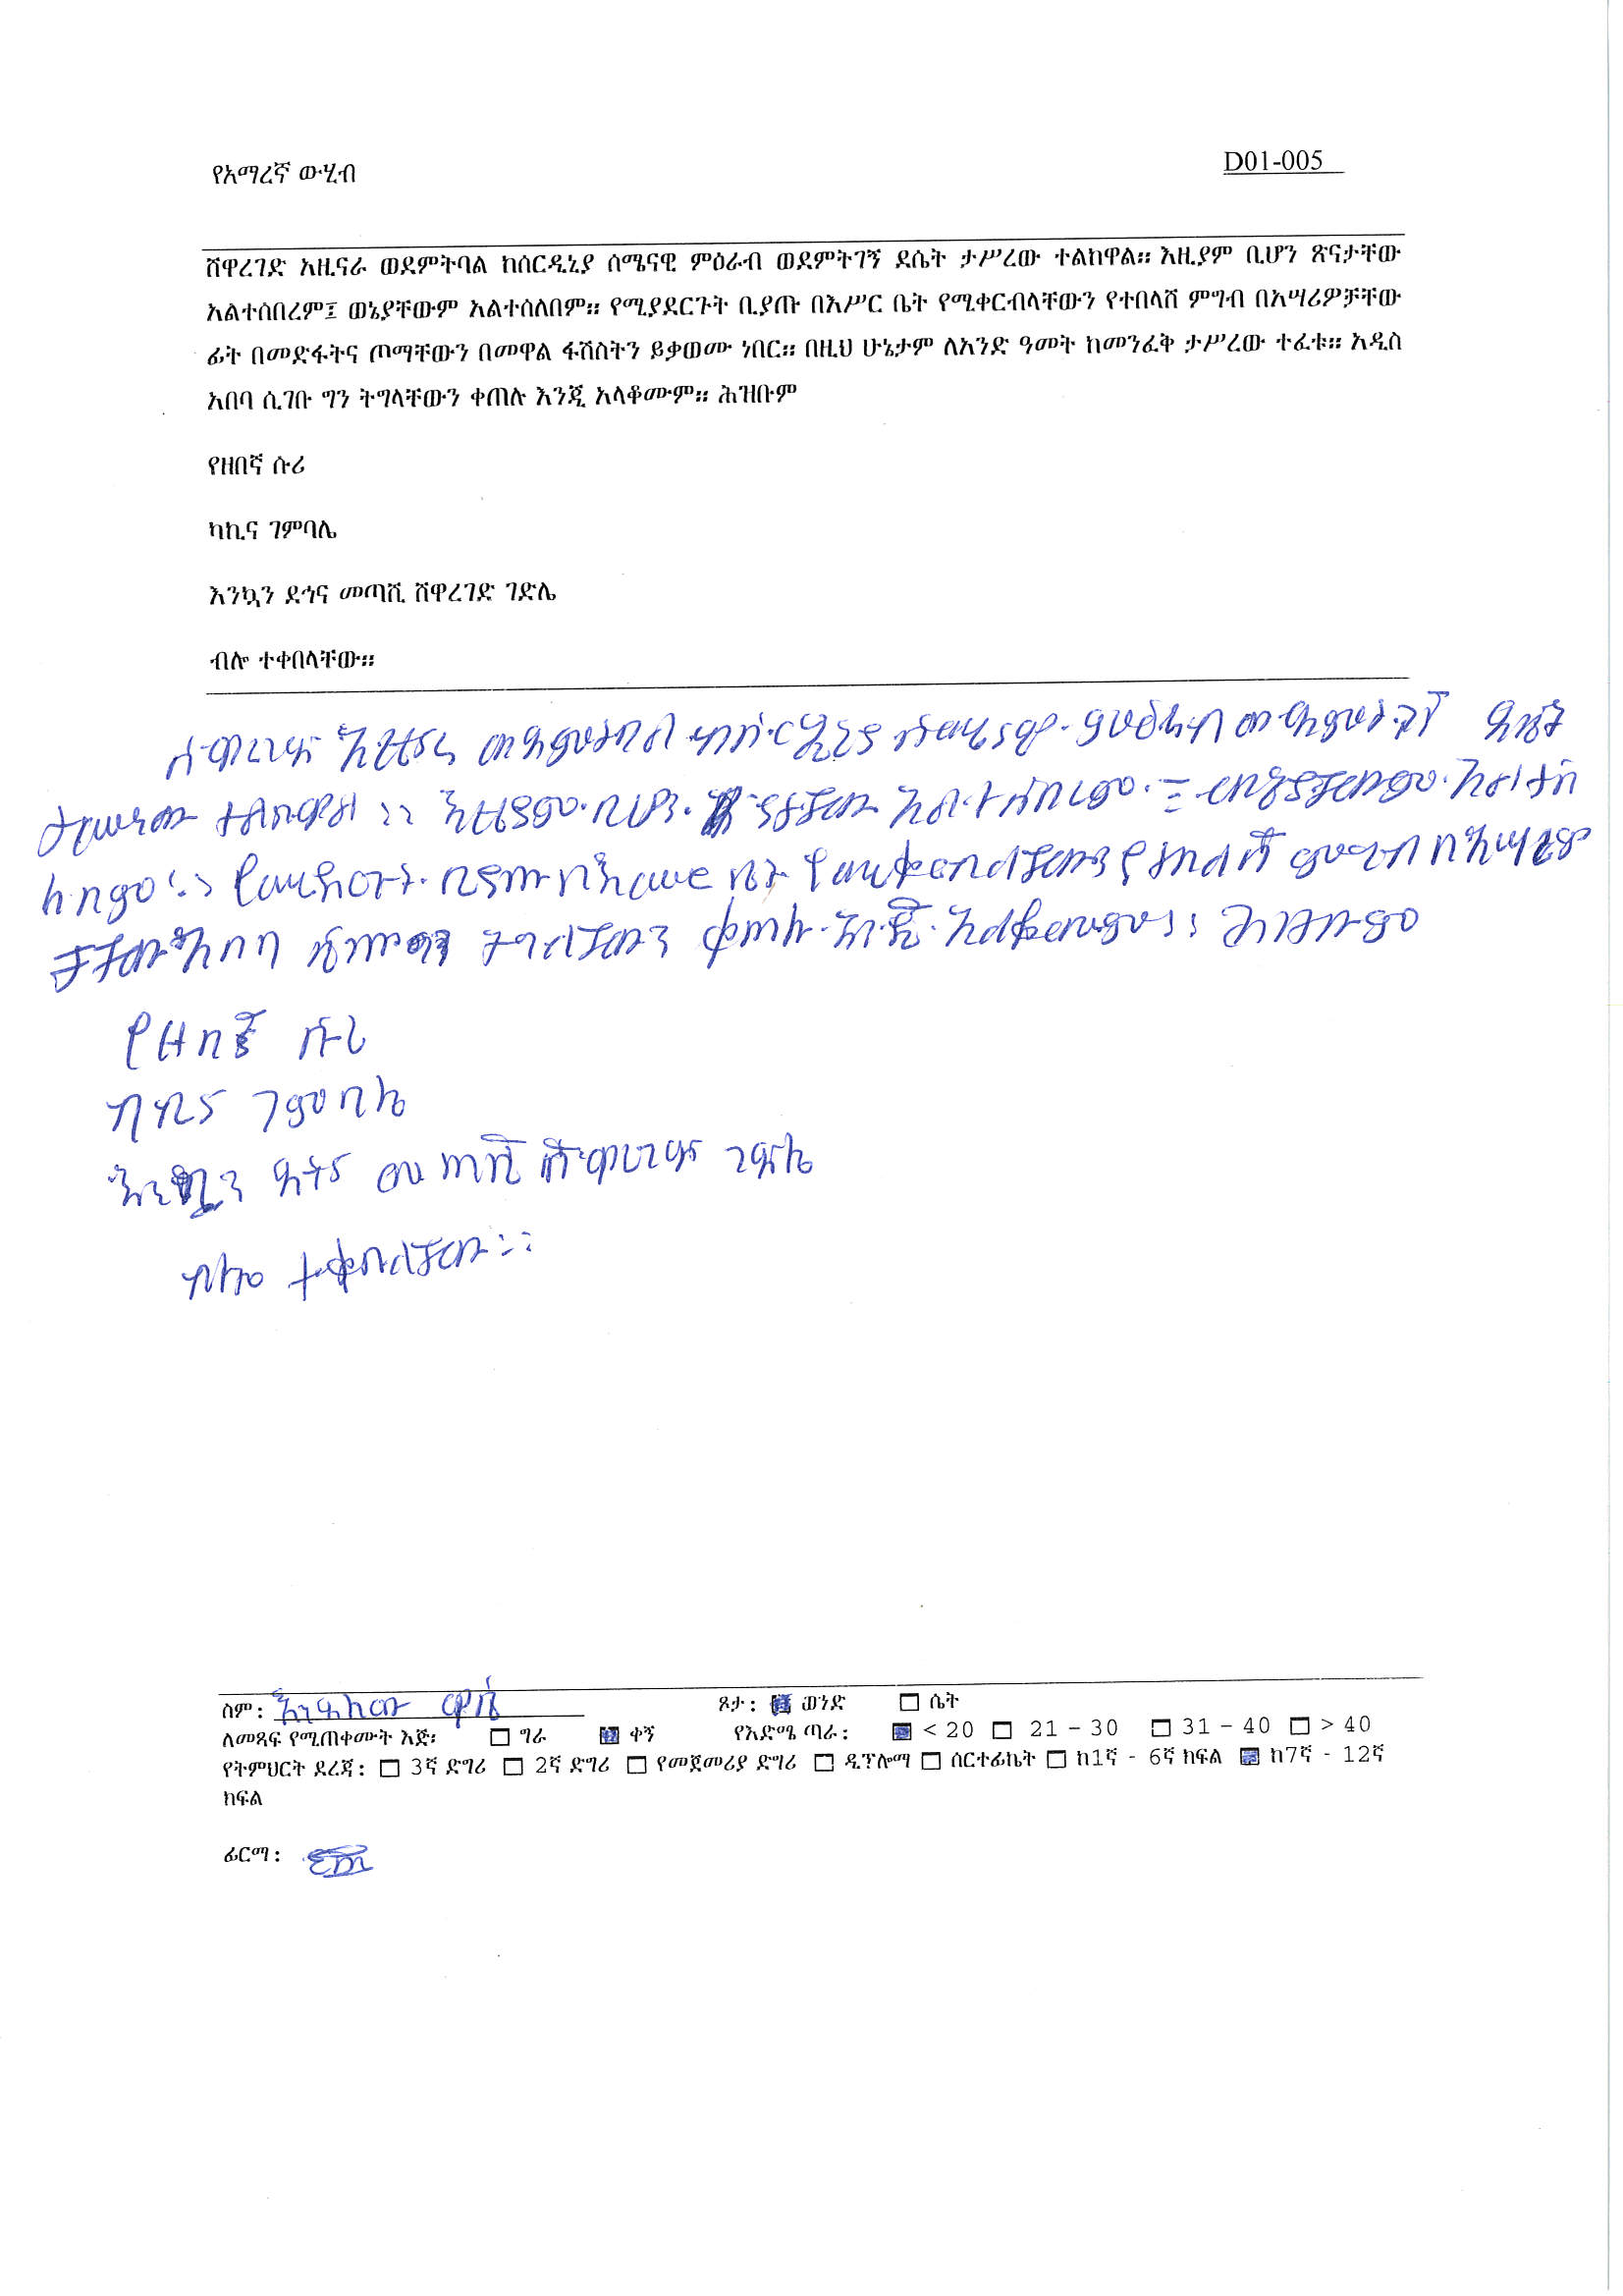 የአማረኛ ውሂብ
D01-005
ሸዋረገድ አዚናራ ወደምትባል ከሰርዲኒያ ሰሜናዊ ምዕራብ ወደምትገኝ ደሴት ታሥረው ተልከዋል። እዚያም ቢሆን ጽናታቸው
አልተሰበረም፤ ወኔያቸውም አልተሰለበም። የሚያደርጉት ቢያጡ በእሥር ቤት የሚቀርብላቸውን የተበላሸ ምግብ በአሣሪዎቻቸው
ፊት በመድፋትና ጦማቸውን በመዋል ፋሽስትን ይቃወሙ ነበር። በዚህ ሁኔታም ለአንድ ዓመት ከመንፈቅ ታሥረው ተፈቱ። አዲስ
አበባ ሲገቡ ግን ትግላቸውን ቀጠሉ እንጂ አላቆሙም። ሕዝቡም
የዘበኛ ሱሪ
ካኪና ገምባሌ
እንኳን ደኅና መጣሺ ሸዋረገድ ገድሌ
ብሎ ተቀበላቸው።
ሸዋረገድ አዚናራ ወደምትባል ከሰርዲኒያ ሰሜናዊ ምዕራብ ወደምትገኝ ደሴት
ታሥረው ተልከዋል ።። እዚያም ቢሆን ጽናታቸው አልተሰበረም ፤ ወኔያቸውም አልተሰ
ለበም ።። የሚያደርጉት ቢያጡ በእሥር ቤት የሚቀርብላቸውን የተበላሸ ምግብ በአሣሪዎ
ቻቸው አበባ ሲገቡ ግን ትግላቸውን ቀጠሉ እንጂ አላቆሙም ።። ሕዝቡም
የዘበኛ ሱሪ
ካኪና ገምባሌ
እንኳን ደኅና መጣሺ ሸዋረገድ ገድሌ
ብሎ ተቀበላቸው ።።
ስም:
ጾታ: ወንድ ሴት
ለመጻፍ የሚጠቀሙት እጅ: ግራ ቀኝ የእድሜ ጣራ: < 20 21 – 30 31 – 40 > 40
የትምህርት ደረጃ: 3ኛ ድግሪ 2ኛ ድግሪ የመጀመሪያ ድግሪ ዲፕሎማ ሰርተፊኬት ከ1ኛ - 6ኛ ክፍል ከ7ኛ - 12ኛ
ክፍል
ፊርማ: